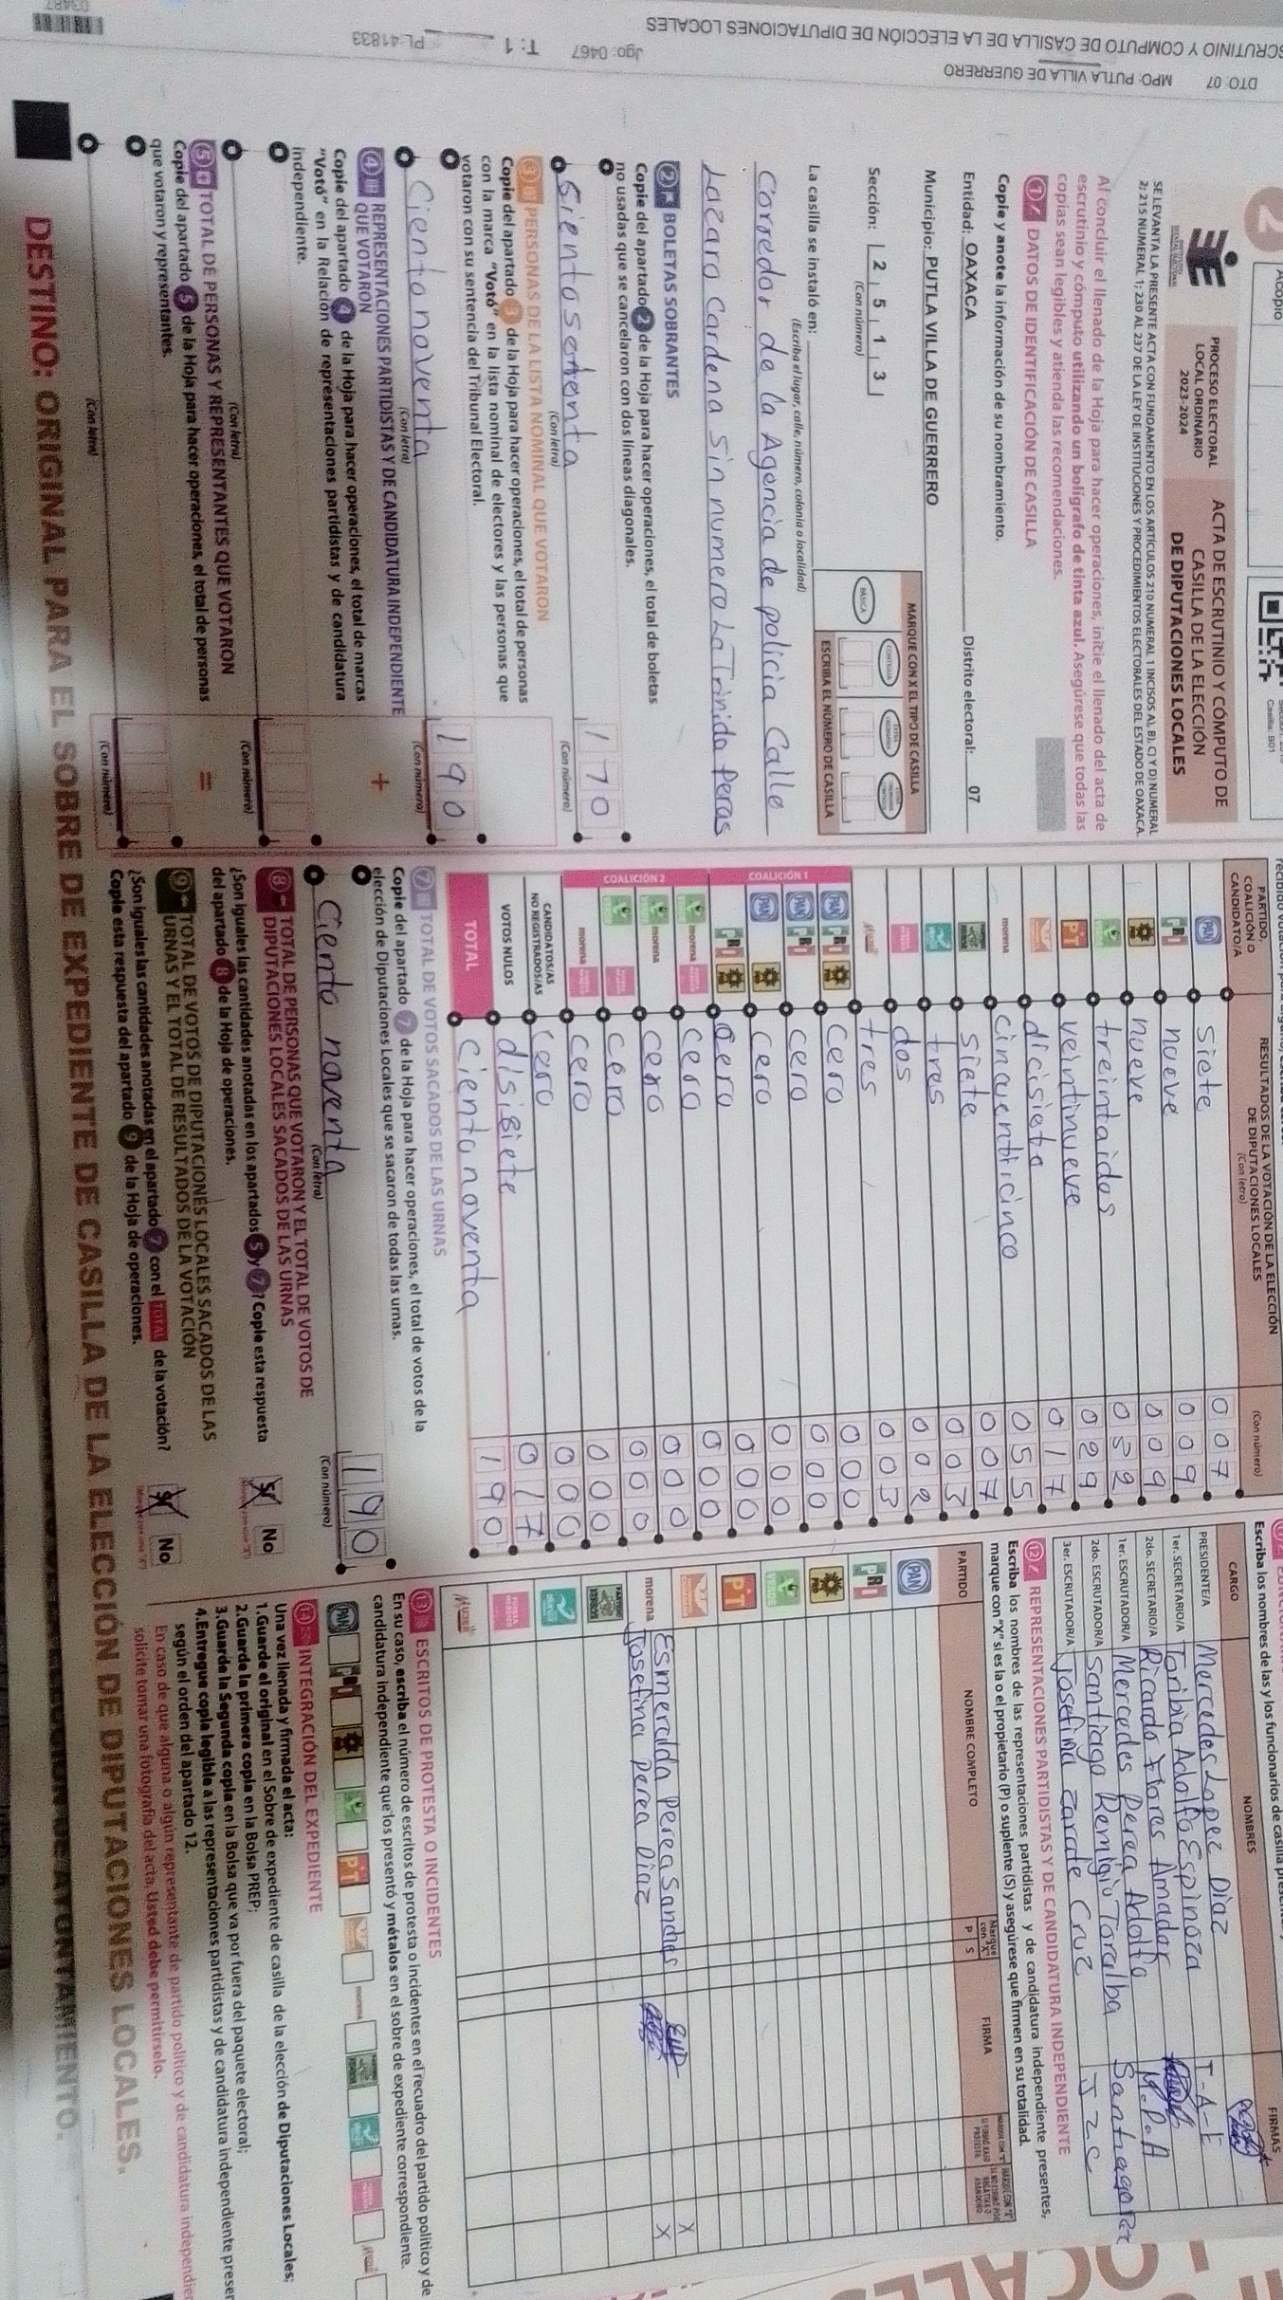 SCRUTINIO Y CÓMPUTO DE CASILLA DE LA ELECCIÓN DE DIPUTACIONES LOCALES
DTO: 07 MPO: PUTLA VILLA DE GUERRERO Jgo: 0467 T: 1 PL:41833
03487
2
Acopio
PROCESO ELECTORAL
LOCAL ORDINARIO
2023-2024
ACTA DE ESCRUTINIO Y CÓMPUTO DE
CASILLA DE LA ELECCIÓN
DE DIPUTACIONES LOCALES
Casilla: B01
SE LEVANTA LA PRESENTE ACTA CON FUNDAMENTO EN LOS ARTÍCULOS 210 NUMERAL 1 INCISOS A), B), C) Y D) NUMERAL
2; 215 NUMERAL 1; 230 AL 237 DE LA LEY DE INSTITUCIONES Y PROCEDIMIENTOS ELECTORALES DEL ESTADO DE OAXACA.
Al concluir el llenado de la Hoja para hacer operaciones, inicie el llenado del acta de
escrutinio y cómputo utilizando un bolígrafo de tinta azul. Asegúrese que todas las
copias sean legibles y atienda las recomendaciones.
1 DATOS DE IDENTIFICACIÓN DE CASILLA
Copie y anote la información de su nombramiento.
Entidad: OAXACA Distrito electoral: 07
Municipio: PUTLA VILLA DE GUERRERO
Sección: 2 5 1 3
(Con número)
MARQUE CON X EL TIPO DE CASILLA
BÁSICA
ESCRIBA EL NÚMERO DE CASILLA
La casilla se instaló en:
(Escriba el lugar, calle, número, colonia o localidad)
Corredor de la Agencia de policia Calle
Lazaro Cardena sin numero La Trinida Peras
2 BOLETAS SOBRANTES
Copie del apartado 2 de la Hoja para hacer operaciones, el total de boletas
no usadas que se cancelaron con dos líneas diagonales.
170
(Con letra) (Con número)
3 PERSONAS DE LA LISTA NOMINAL QUE VOTARON
Copie del apartado 3 de la Hoja para hacer operaciones, el total de personas
con la marca "Votó" en la lista nominal de electores y las personas que
votaron con su sentencia del Tribunal Electoral.
Ciento noventa 190
(Con letra) (Con número)
4 REPRESENTACIONES PARTIDISTAS Y DE CANDIDATURA INDEPENDIENTE
QUE VOTARON
Copie del apartado 4 de la Hoja para hacer operaciones, el total de marcas
"Votó" en la Relación de representaciones partidistas y de candidatura
independiente.
+
(Con letra) (Con número)
5 TOTAL DE PERSONAS Y REPRESENTANTES QUE VOTARON
Copie del apartado 5 de la Hoja para hacer operaciones, el total de personas
que votaron y representantes.
=
(Con letra) (Con número)
PARTIDO,
COALICIÓN O
CANDIDATO/A
RESULTADOS DE LA VOTACIÓN DE LA ELECCIÓN
DE DIPUTACIONES LOCALES
(Con letra) (Con número)
PAN siete 007
PRI nueve 009
PRD nueve 009
treintaidos 032
PT veintinueve 029
dicisiete 017
morena cincuenticinco 055
siete 007
tres 003
dos 002
tres 003
COALICIÓN 1
PAN PRI PRD cero 000
PAN PRI cero 000
PAN PRD cero 000
PRI PRD cero 000
COALICIÓN 2
morena cero 000
morena cero 000
cero 000
morena cero 000
CANDIDATOS/AS
NO REGISTRADOS/AS cero 000
VOTOS NULOS disisiete 017
TOTAL Ciento noventa 190
7 TOTAL DE VOTOS SACADOS DE LAS URNAS
Copie del apartado 7 de la Hoja para hacer operaciones, el total de votos de la
elección de Diputaciones Locales que se sacaron de todas las urnas.
Ciento noventa 190
(Con letra) (Con número)
8 TOTAL DE PERSONAS QUE VOTARON Y EL TOTAL DE VOTOS DE
DIPUTACIONES LOCALES SACADOS DE LAS URNAS
¿Son iguales las cantidades anotadas en los apartados 5 y 7? Copie esta respuesta
del apartado 8 de la Hoja de operaciones.
Sí No
9 TOTAL DE VOTOS DE DIPUTACIONES LOCALES SACADOS DE LAS
URNAS Y EL TOTAL DE RESULTADOS DE LA VOTACIÓN
¿Son iguales las cantidades anotadas en el apartado 7 con el TOTAL de la votación?
Copie esta respuesta del apartado 9 de la Hoja de operaciones.
Sí No
Escriba los nombres de las y los funcionarios de casilla
CARGO NOMBRES FIRMAS
PRESIDENTE/A Mercedes Lopez Diaz
1er. SECRETARIO/A Toribia Adolfa Espinoza T-A-E
2do. SECRETARIO/A Ricardo Flores Amador
1er. ESCRUTADOR/A Mercedes Perea Adolfo M.P.A
2do. ESCRUTADOR/A Santiago Remigio Toralba
3er. ESCRUTADOR/A Josefina Zarate Cruz J Z C
12 REPRESENTACIONES PARTIDISTAS Y DE CANDIDATURA INDEPENDIENTE
Escriba los nombres de las representaciones partidistas y de candidatura independiente presentes,
marque con "X" si es la o el propietario (P) o suplente (S) y asegúrese que firmen en su totalidad.
PARTIDO NOMBRE COMPLETO Marque con "X" P S FIRMA
PAN
PRI
PRD
PT
morena Esmeralda perea Sandes X
Josefina perea Diaz X
13 ESCRITOS DE PROTESTA O INCIDENTES
En su caso, escriba el número de escritos de protesta o incidentes en el recuadro del partido político y de
candidatura independiente que los presentó y métalos en el sobre de expediente correspondiente.
14 INTEGRACIÓN DEL EXPEDIENTE
Una vez llenada y firmada el acta:
1.Guarde el original en el Sobre de expediente de casilla de la elección de Diputaciones Locales;
2.Guarde la primera copia en la Bolsa PREP;
3.Guarde la Segunda copia en la Bolsa que va por fuera del paquete electoral;
4.Entregue copia legible a las representaciones partidistas y de candidatura independiente
según el orden del apartado 12.
En caso de que alguna o algún representante de partido político y de candidatura
solicite tomar una fotografía del acta, Usted debe permitírselo.
DESTINO: ORIGINAL PARA EL SOBRE DE EXPEDIENTE DE CASILLA DE LA ELECCIÓN DE DIPUTACIONES LOCALES.
AYUNTAMIENTO.